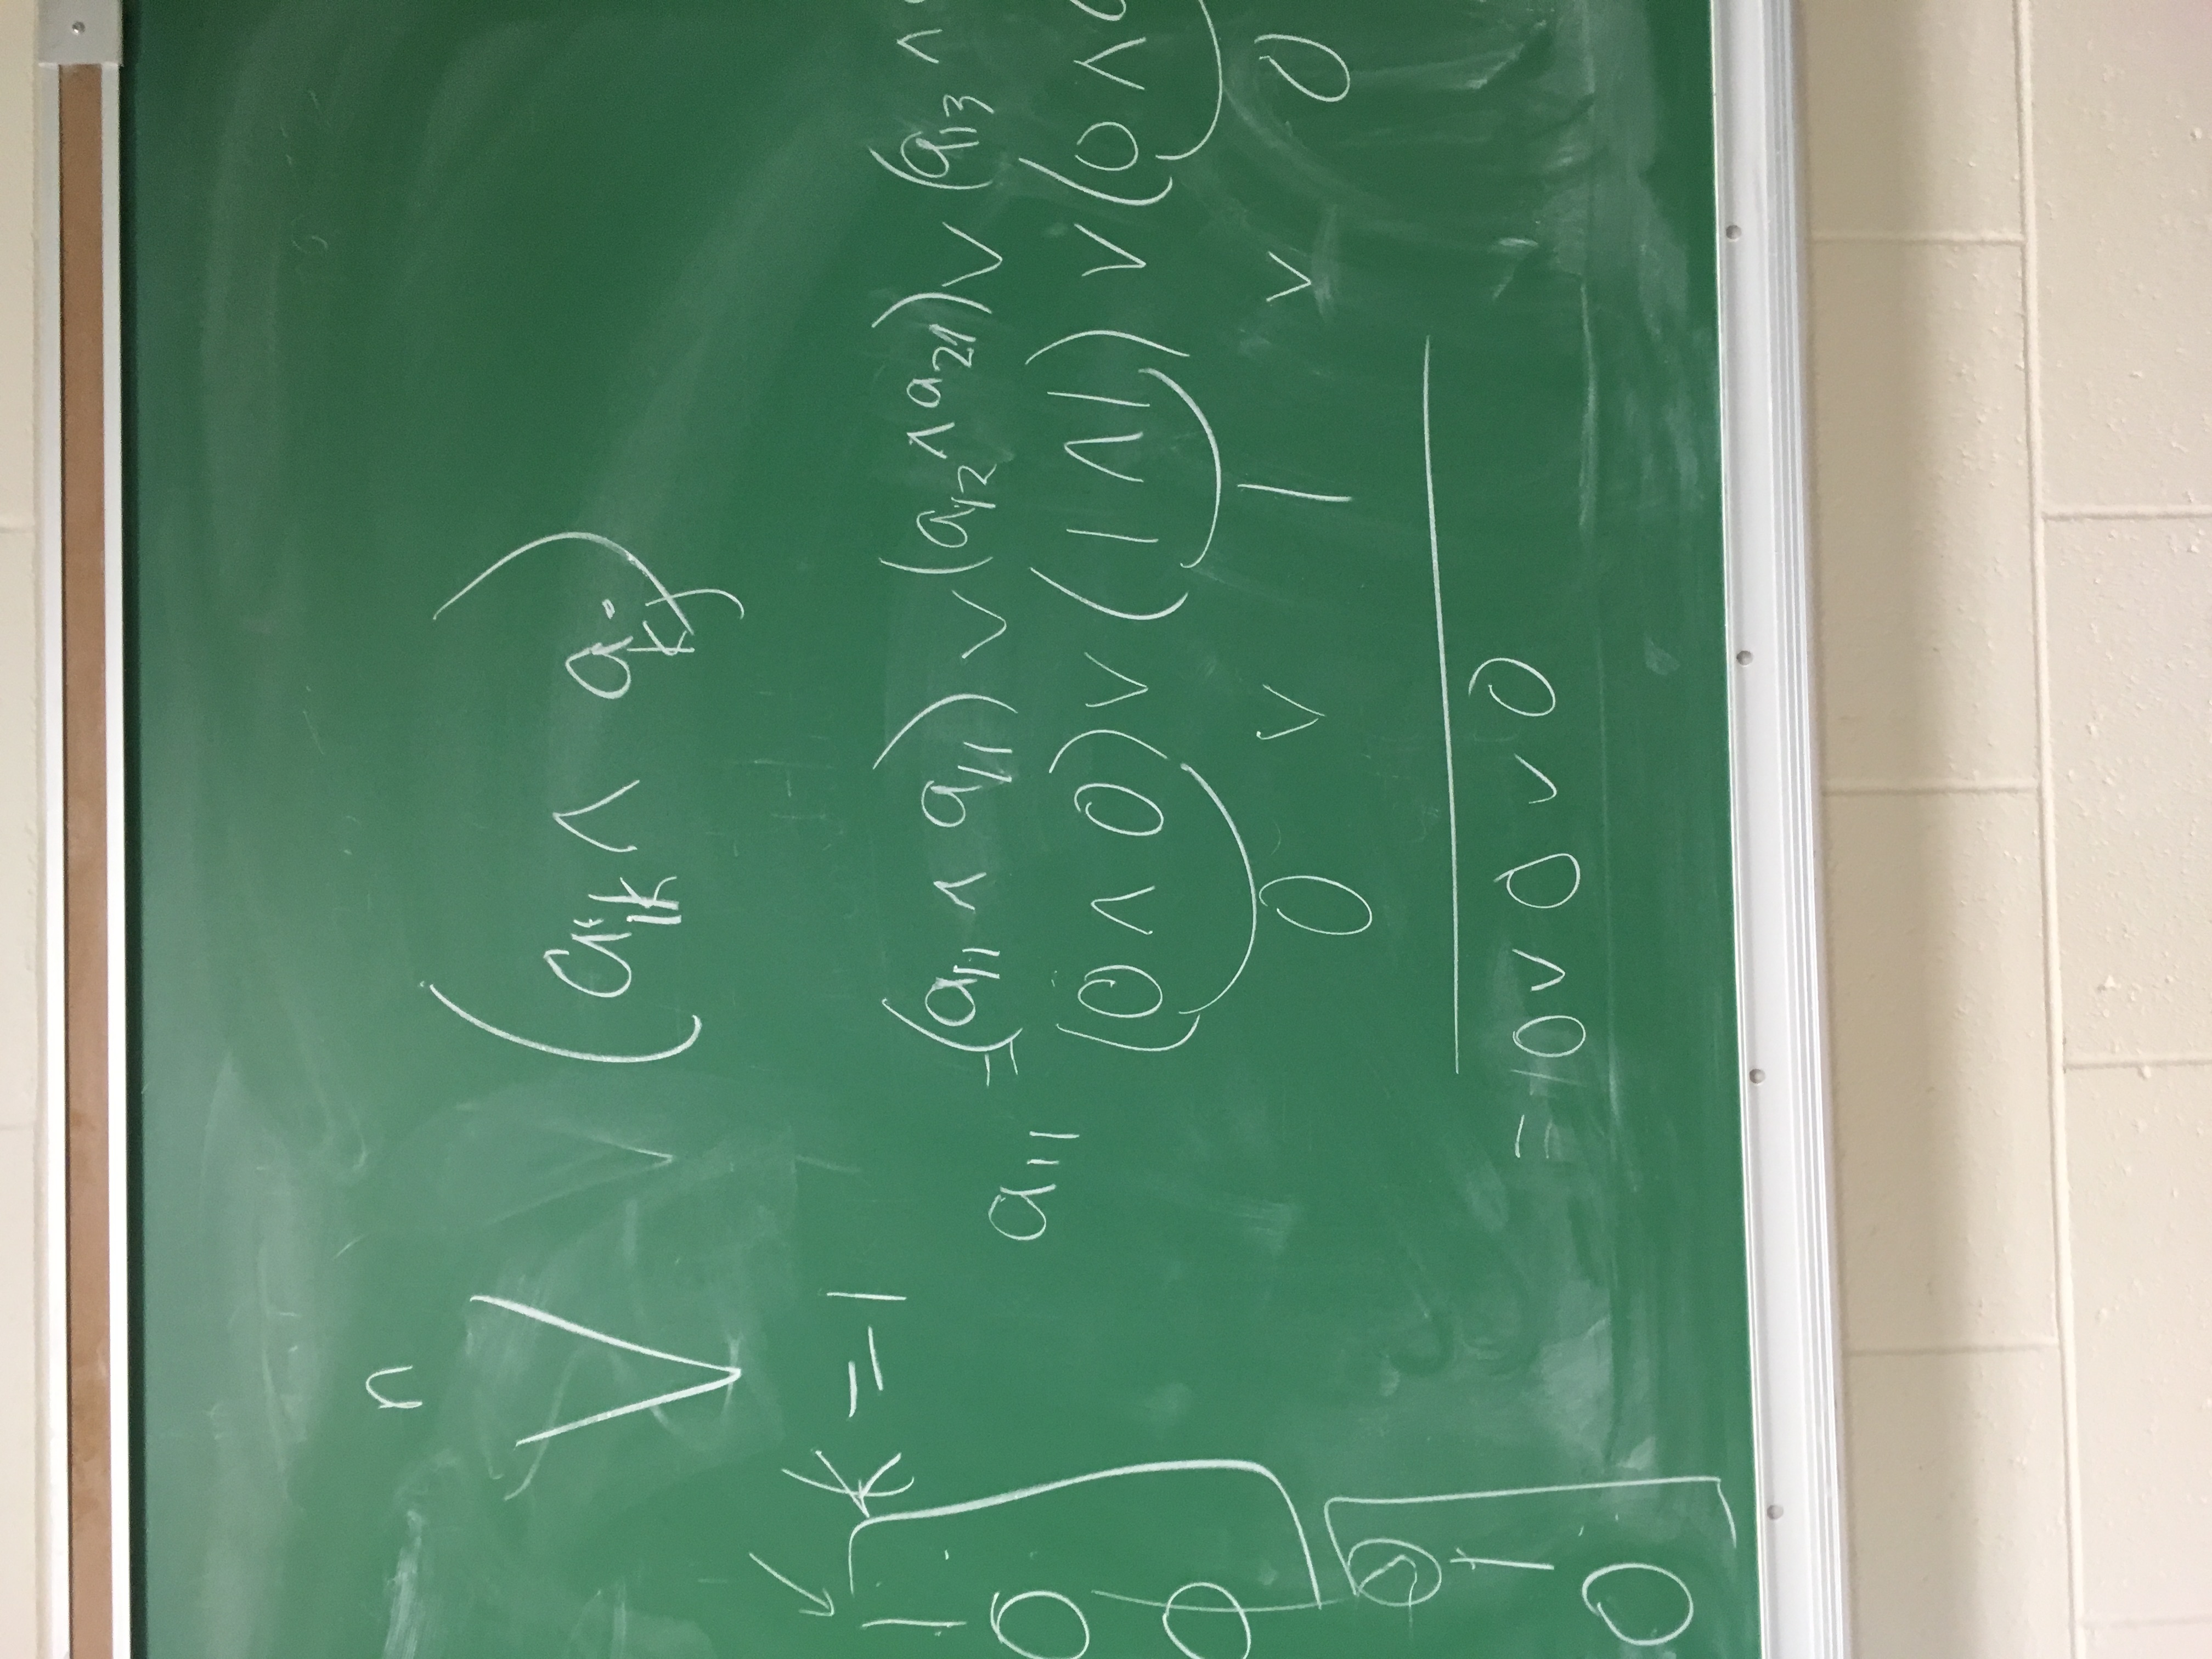 n
⋁ (aᵢₖ ∧ aₖⱼ)
k=1
a₁₁ = (a₁₁ ∧ a₁₁) ∨ (a₁₂ ∧ a₂₁) ∨ (a₁₃ ∧
(0 ∧ 0) ∨ (1 ∧ 1) ∨ (0 ∧ 0
0 ∨ 1 ∨ 0
= 0 ∨ 0 ∨ 0
1
0
0
1
0